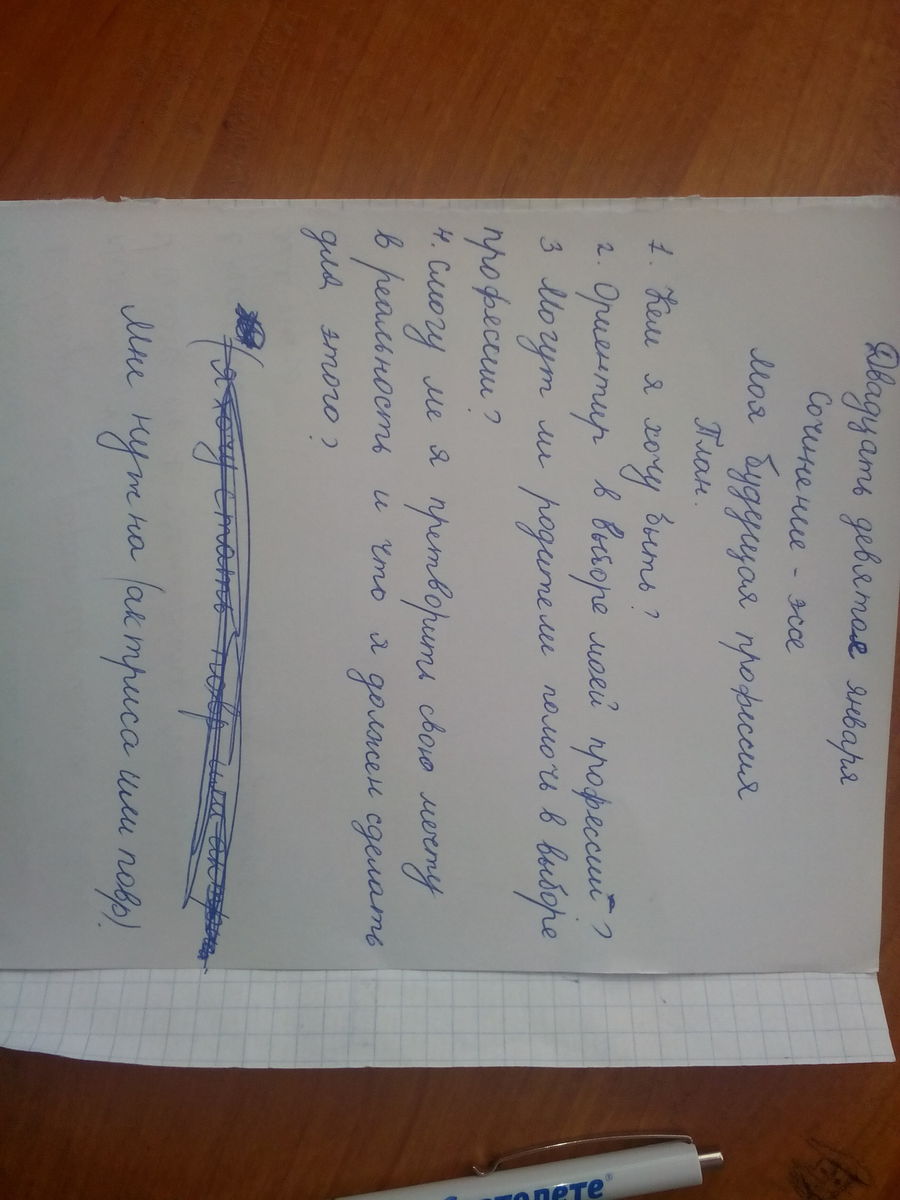 Двадцать девятое января
Сочинение - эссе
Моя будущая профессия
План.
1. Кем я хочу быть?
2. Ориентир в выборе моей профессии?
3 Могут ли родители помочь в выборе
профессии?
4. смогу ли я претворить свою мечту
в реальность и что я должен сделать
для этого?
(я хочу стать повр или акт
Мне нужна (актриса или повр).